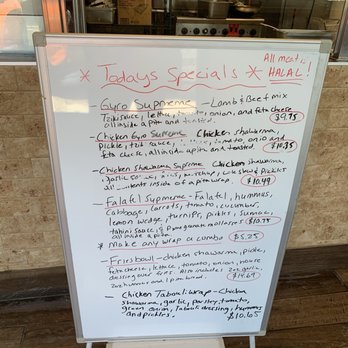 All meat is
HALAL!
* Todays Specials *
- Gyro Supreme - Lamb & Beef mix
Tziki sauce, lettuce, onion, and feta cheese
all inside a pita and toasted. $9.75
- Chicken Gyro Supreme Chicken shawarma,
pickle, sauce, tomato, onion and
feta cheese, all inside a pita and toasted
- Chicken Shawarma Supreme Chicken shawarma,
garlic pickles
all inside of a pita wrap. $10.49
- Falafel Supreme - Falafel, hummus,
cabbage, carrots, tomato, cucumber,
lemon wedge, turnips, pickles, Sumac,
tahini sauce, & Pomegranate molasses $10.75
all inside a pita
* Make any wrap a combo $5.25
- Friesbowl - chicken shawarma, pickle,
feta cheese, lettuce, tomato, onion, house
dressing over fries. Also includes 2oz garlic
2oz hummus and 1 pita bread. $14.69
- Chicken Tabouli wrap - Chicken
Shawarma, garlic, parsley, tomato,
green onion, dressing, hummus
and pickles. $10.65